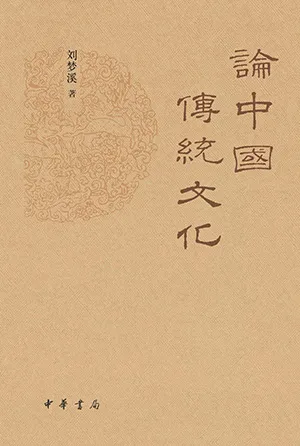 論中國
傳統文化
刘梦溪 著
中華書局